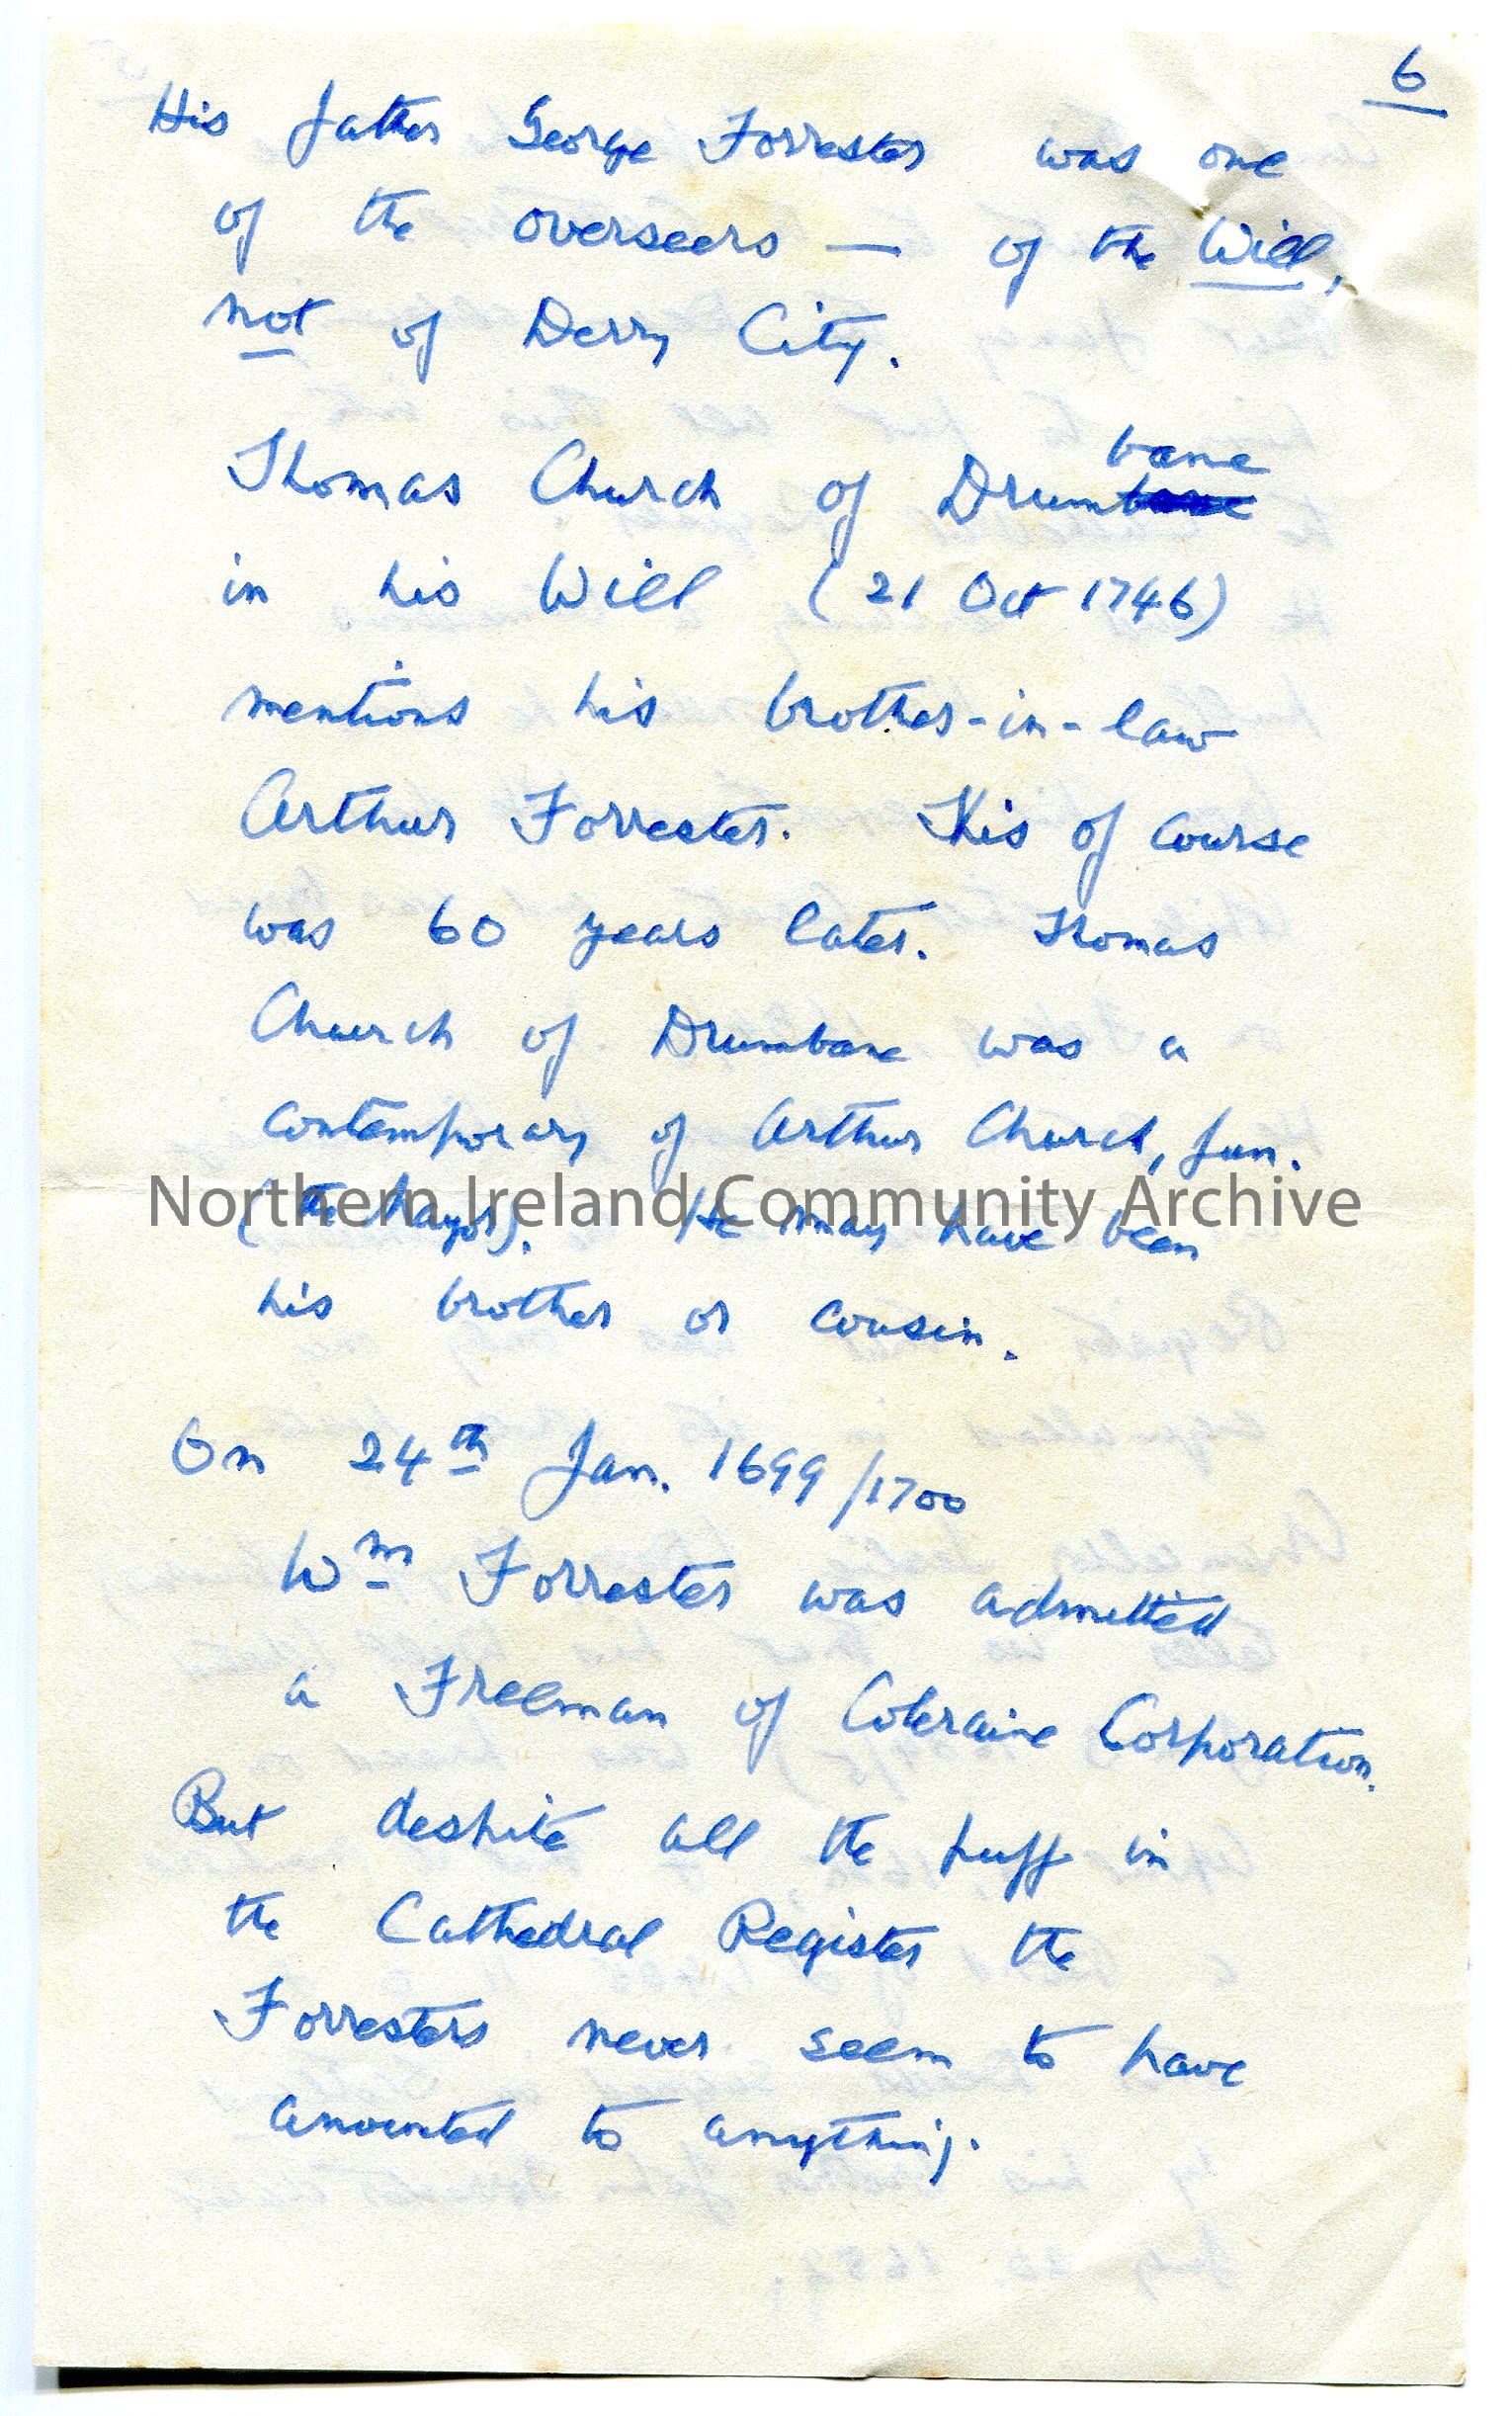 6
His father George Forrester was one
of the overseers — of the Will,
not of Derry City.
bane
Thomas Church of Drum
in his Will (21 Oct 1746)
mentions his brother-in-law
Arthur Forrester. This of course
was 60 years later. Thomas
Church of Drumbane was a
contemporary of Arthur Church, Jun.
Northern Ireland Community Archive
(the Mayor). He may have been
his brother or cousin.
On 24th Jan. 1699/1700
Wm Forrester was admitted
a Freeman of Coleraine Corporation.
But despite all the puff in
the Cathedral Register the
Forresters never seem to have
amounted to anything.